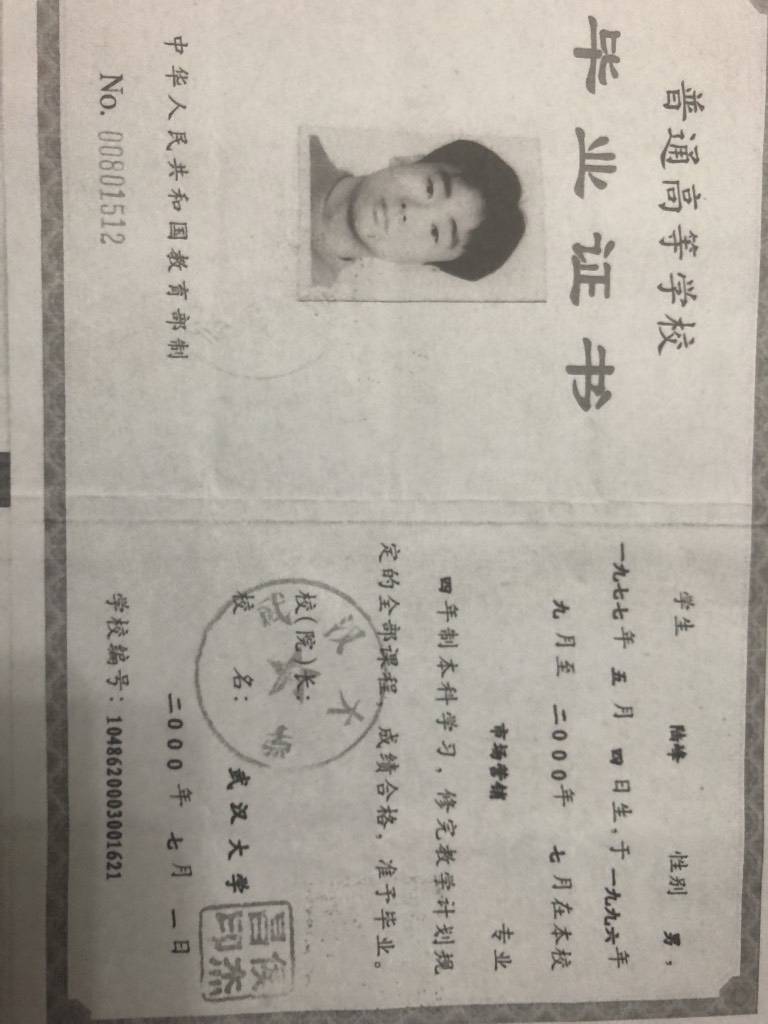 普通高等学校
毕业证书
中华人民共和国教育部制
No. 00801512
学生 陆峰 性别 男，
一九七七年 五 月 四 日生，于一九九六年
九 月至 二000年 七 月在本校
市场营销 专业
四 年制本科学习，修完教学计划规
定的全部课程，成绩合格，准予毕业。
校(院)长：
校 名： 武汉大学
二000 年 七 月 一 日
学校编号：1048620003001621
武汉大学
侯杰昌印